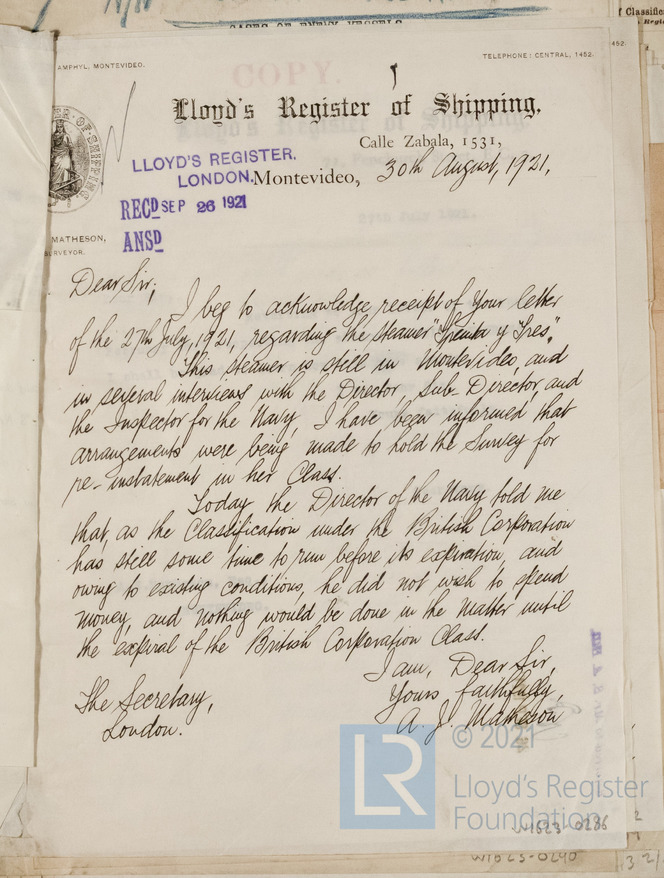 CASES OF ENEMY VESSELS
f Classifica
452
AMPHYL, MONTEVIDEO.
TELEPHONE: CENTRAL, 1452.
COPY.
Lloyd's Register of Shipping,
Calle Zabala, 1531,
LLOYD'S REGISTER,
LONDON.
Montevideo, 30th August, 1921,
RECD SEP 26 1921
ANSD
MATHESON,
SURVEYOR.
Dear Sir,
I beg to acknowledge receipt of your letter
of the 27th July, 1921, regarding the steamer "Treinta y Tres."
This steamer is still in Montevideo, and
in several interviews with the Director, Sub-Director, and
the Inspector for the Navy, I have been informed that
arrangements were being made to hold the Survey for
re-instatement in her Class.
Today the Director of the Navy told me
that, as the Classification under the British Corporation
has still some time to run before its expiration, and
owing to existing conditions, he did not wish to spend
money, and nothing would be done in the matter until
the expiral of the British Corporation Class.
I am, Dear Sir,
Yours faithfully,
A. J. Matheson
The Secretary,
London.
© 2021
LR
Lloyd's Register
Foundation
W1623-0286
W1623-0290